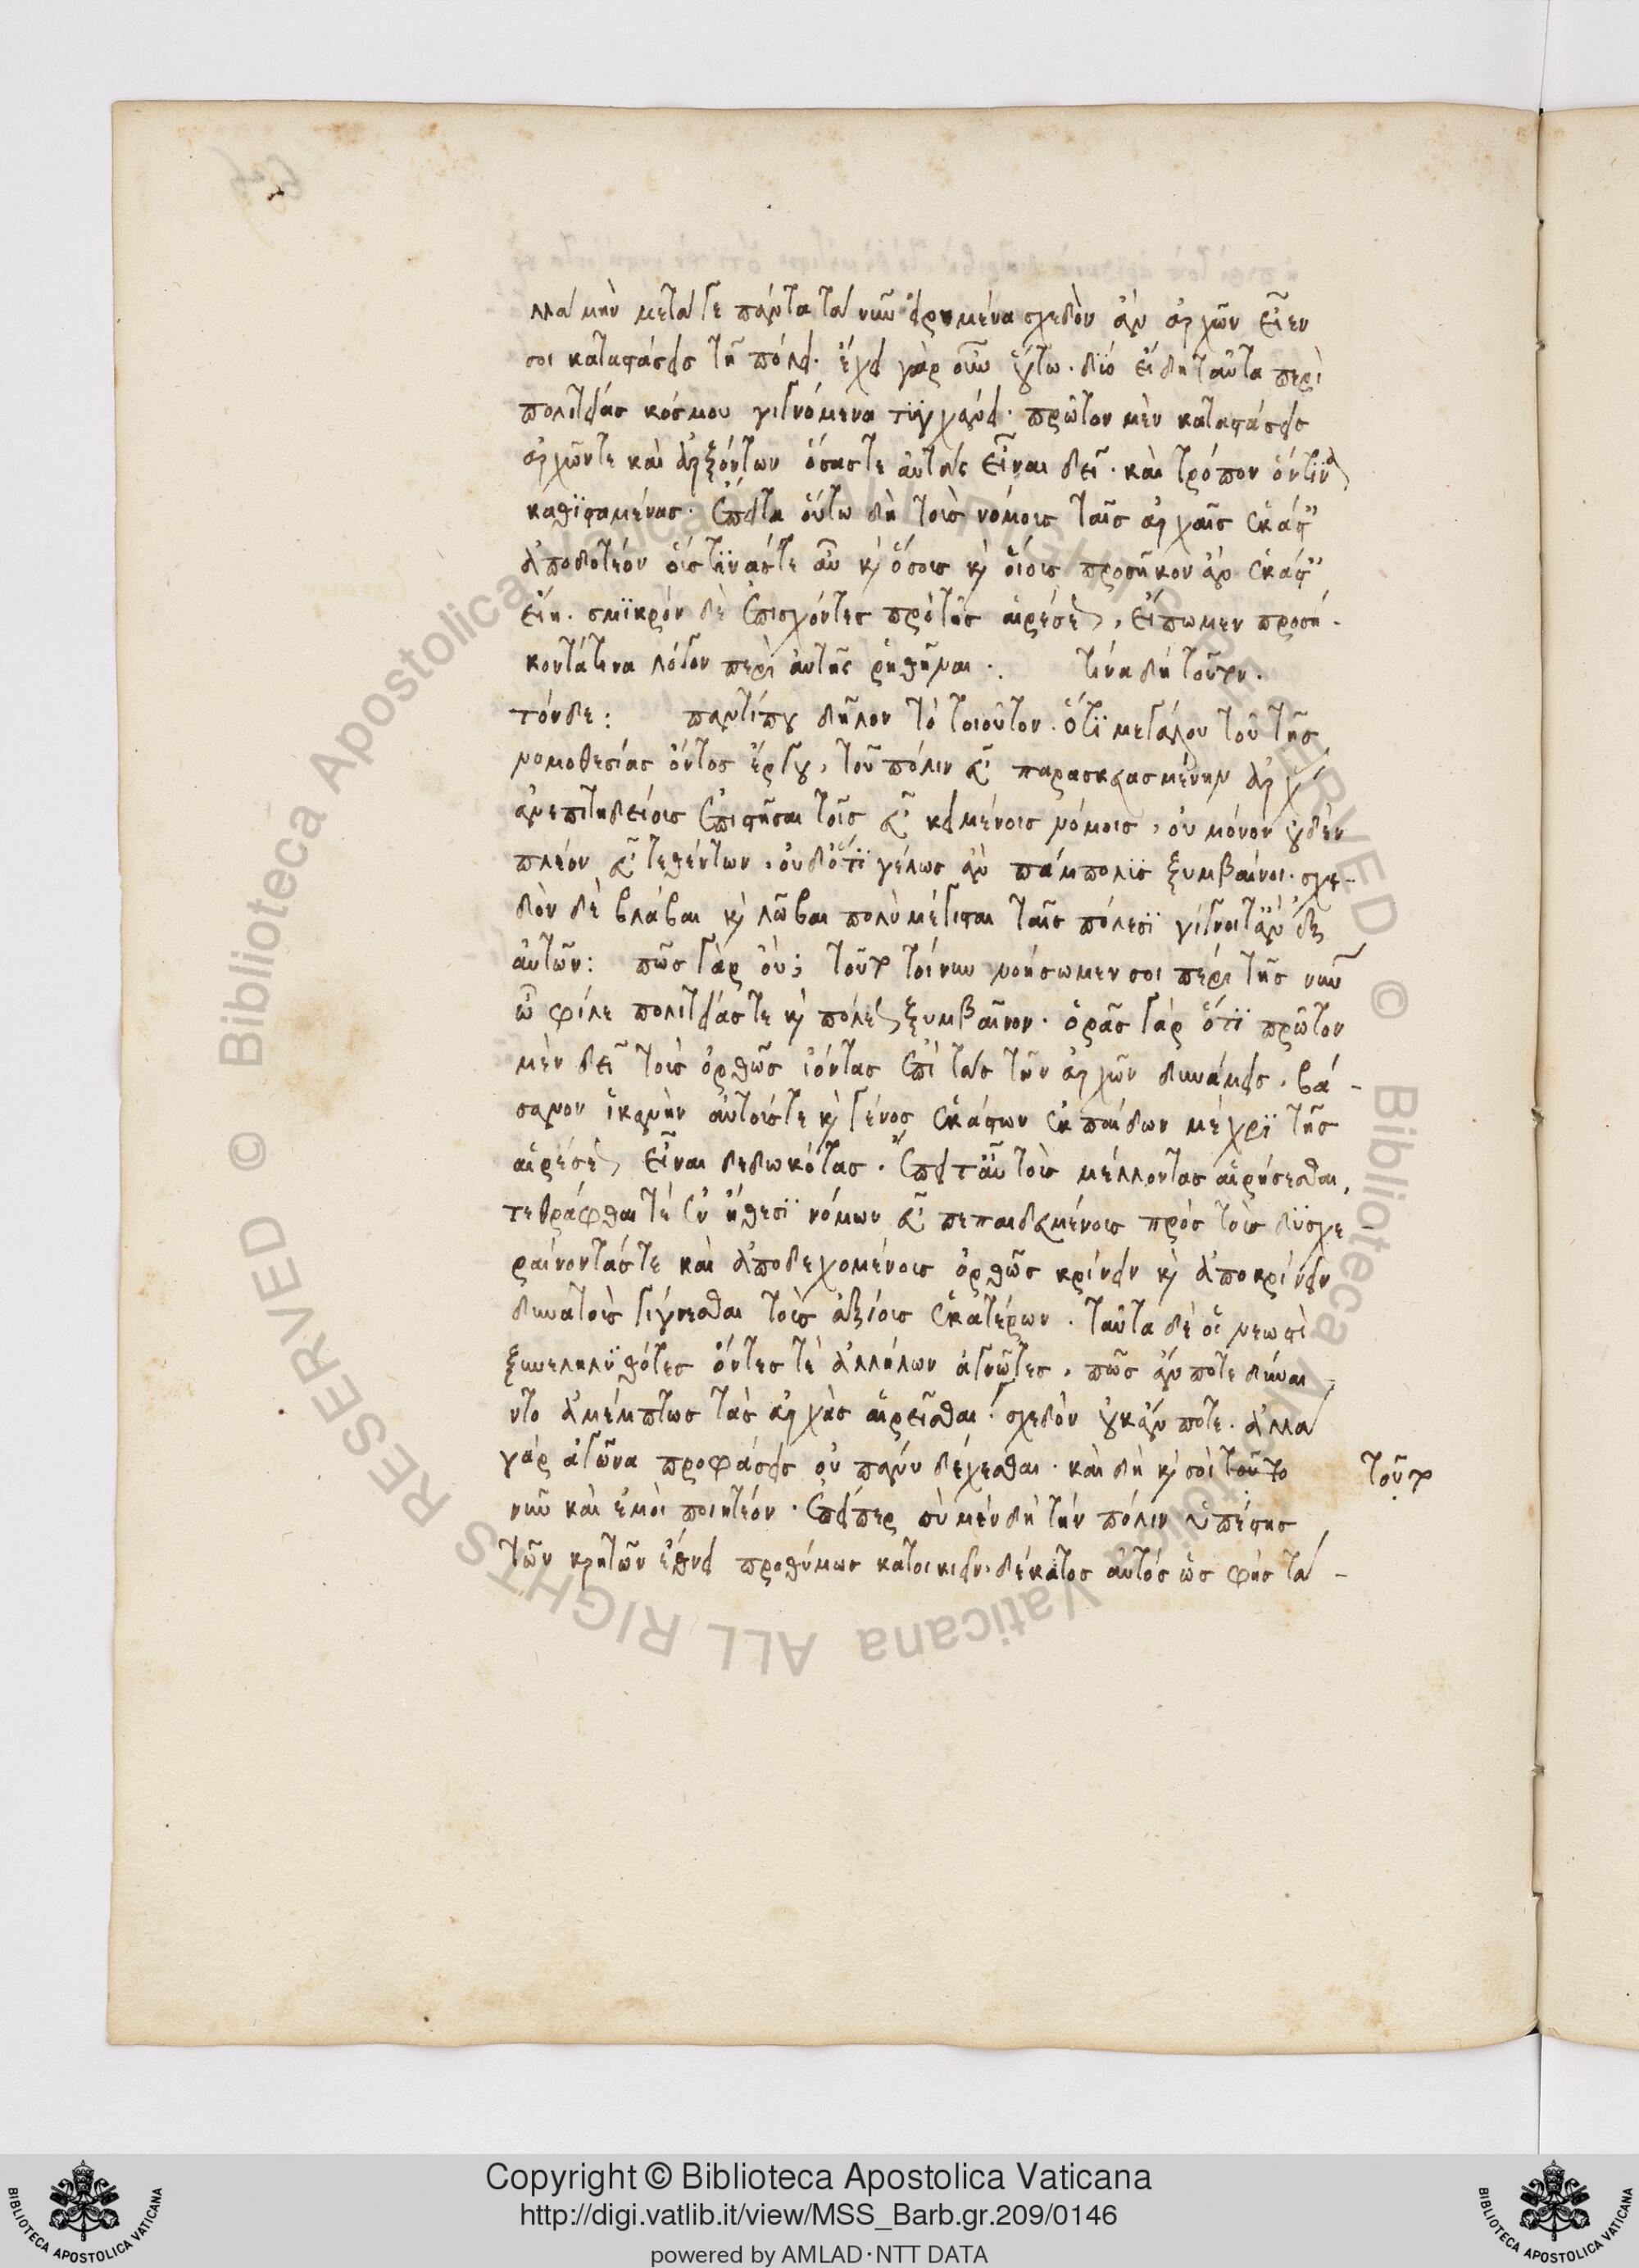 λλὰ μὴν μετάγε πάντα τὰ νῦν εἰρημένα σχεδὸν ἂν ἀρχῶν εἶεν
σοι καταστάσεις τῇ πόλει. ἔχει γὰρ οὖν οὕτω. δύο εἴδη ταῦτα περὶ
πολιτείας κόσμου γιγνόμενα τυγχάνει. πρῶτον μὲν καταστάσεις
ἀρχῶντε καὶ ἀρξόντων ὅσαστε αὐτὰς εἶναι δεῖ. καὶ τρόπον ὅντινα
καθισταμένας. ἔπειτα οὕτω δὴ τοὺς νόμους ταῖς ἀρχαῖς ἑκάσταις
ἀποδοτέον οὕστινάστε αὖ καὶ ὅσους καὶ οἵους προσῆκον ἂν ἑκάσταις
εἴη. σμικρὸν δὲ ἐπισχόντες πρὸ τῆς αἱρέσεως, εἴπωμεν προσή-
κοντά τινα λόγον περὶ αὐτῆς ῥηθῆναι. τίνα δὴ τοῦτον.
τόνδε: παντί που δῆλον τὸ τοιοῦτον. ὅτι μεγάλου τοῦ τῆς
νομοθεσίας ὄντος ἔργου, τοῦ πόλιν εὖ παρασκευασμένην ἀρχὰς
ἀνεπιτηδείους ἐπιστῆσαι τοῖς εὖ κειμένοις νόμοις, οὐ μόνον οὐδὲν
πλέον εὖ τεθέντων. οὐδ᾽ ὅτι γέλως ἂν πάμπολυς ξυμβαίνοι. σχε-
δὸν δὲ βλάβαι καὶ λῶβαι πολὺ μέγισται ταῖς πόλεσι γίγνοιντ᾽ ἂν ἐξ
αὐτῶν: πῶς γὰρ οὔ; τοῦτο τοίνυν νοήσωμεν σοι περὶ τῆς νῦν
ὦ φίλε πολιτείαςτε καὶ πόλεως ξυμβαῖνον. ὁρᾷς γὰρ ὅτι πρῶτον
μὲν δεῖ τοὺς ὀρθῶς ἰόντας ἐπὶ τὰς τῶν ἀρχῶν δυνάμεις. βά-
σανον ἱκανὴν αὐτούςτε καὶ γένος ἑκάστων ἐκ παίδων μέχρι τῆς
αἱρέσεως εἶναι δεδωκότας. ἔπειτ᾽ αὖ τοὺς μέλλοντας αἱρήσεσθαι,
τεθράφθαι τέ ἐν ἤθεσι νόμων εὖ πεπαιδευμένους πρὸς τοὺς δυσχε-
ραίνοντάςτε καὶ ἀποδεχομένους ὀρθῶς κρίνειν καὶ ἀποκρίνειν
δυνατοὺς γίγνεσθαι τοὺς ἀξίους ἑκατέρων. ταῦτα δὲ οἱ νεωστὶ
ξυνεληλυθότες ὄντες τὲ ἀλλήλων ἀγνῶτες, πῶς ἄν ποτε δύναι-
ντο ἀμέμπτως τὰς ἀρχὰς αἱρεῖσθαι. σχεδὸν οὐκ ἄν ποτε. ἀλλὰ
γὰρ ἀγῶνα προφάσεις οὐ πάνυ δέχεσθαι. καὶ δὴ καὶ σοὶ τοῦτο τοῦτο
νῦν καὶ ἐμοὶ ποιητέον. ἐπείπερ σὺ μὲν δὴ τὴν πόλιν ὑπέστης
τῶν κρητῶν ἔθνει προθύμως κατοικιεῖν. δέκατος αὐτός ὡς φῂς τὰ-
Copyright © Biblioteca Apostolica Vaticana
http://digi.vatlib.it/view/MSS_Barb.gr.209/0146
powered by AMLAD·NTT DATA
BIBLIOTECA APOSTOLICA VATICANA
BIBLIOTECA APOSTOLICA VATICANA
Biblioteca Apostolica Vaticana ALL RIGHTS RESERVED ©
Biblioteca Apostolica Vaticana ALL RIGHTS RESERVED ©